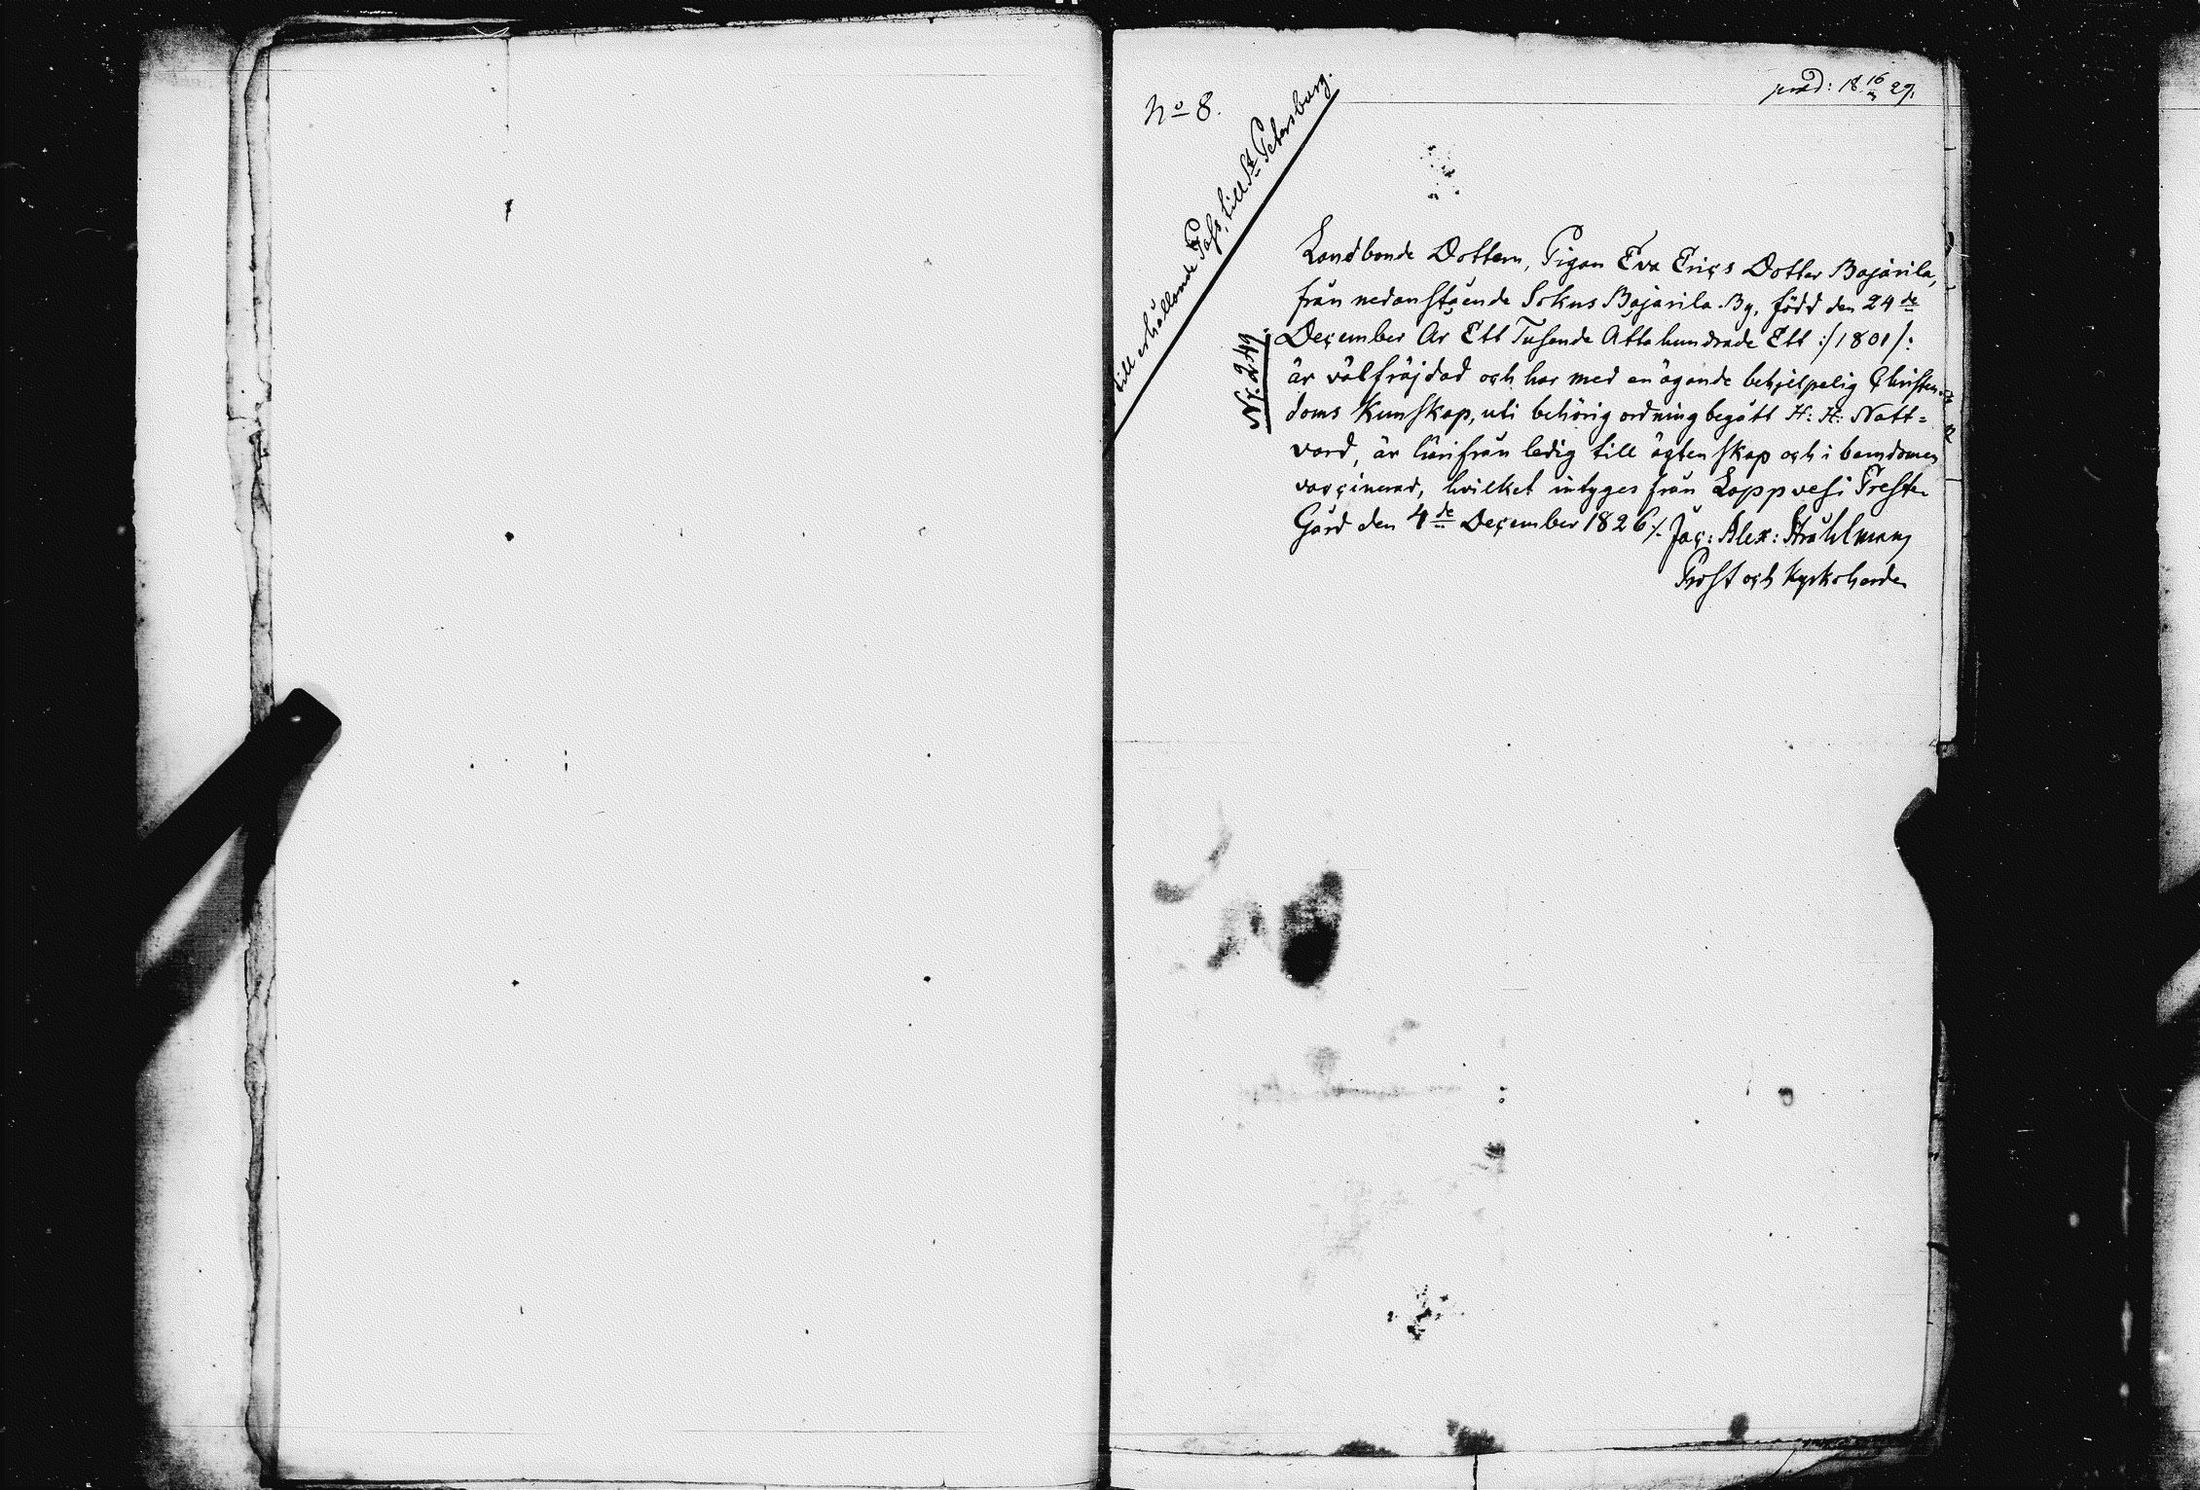 No 8.
prod: 18 16/3 27.
till erhållande Pass, till St Petersburg.
Nr. 249.
Landbonde Dottern, Pigan Eva Erics Dotter Bajarila,
från nedanstående Soknes Bajarila By, född den 24de
December År Ett Tusende Åtta hundrade Ett :/1801/:
är välfräjdad och har med en ägande behjelpelig Christen-
doms Kunskap, uti behörig ordning begått H: H: Natt=
vard, är härifrån ledig till ägtenskap och i barndomen
vaccinerad, hvilket intyges från Lappvesi Preste
Gård den 4de December 1826 ./.
Jac: Alex: Stråhlman,
Prost och Kyrkoherde